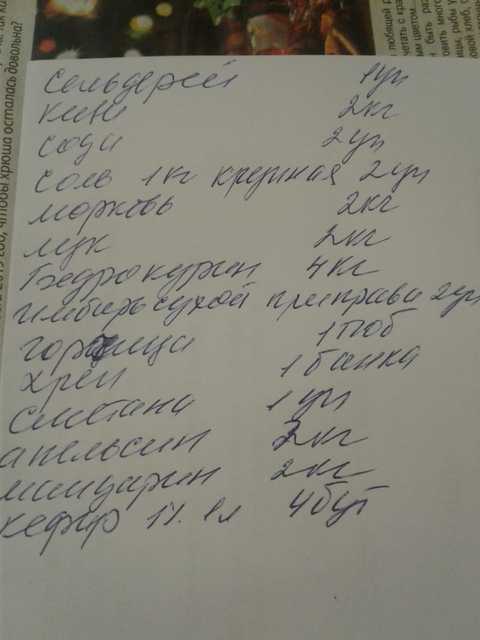 чтобы хрюша осталась довольна?
сельдерей 1уп
киви 2кг
сода 2уп
соль 1кг крупная 2уп
морковь 2кг
лук 2кг
бедро курин 4кг
имбирь сухой приправа 2уп
горчица 1тюб
хрен 1 банка
сметана 1 уп
апельсин 2кг
мандарин 2кг
кефир 1% 1л 4бут